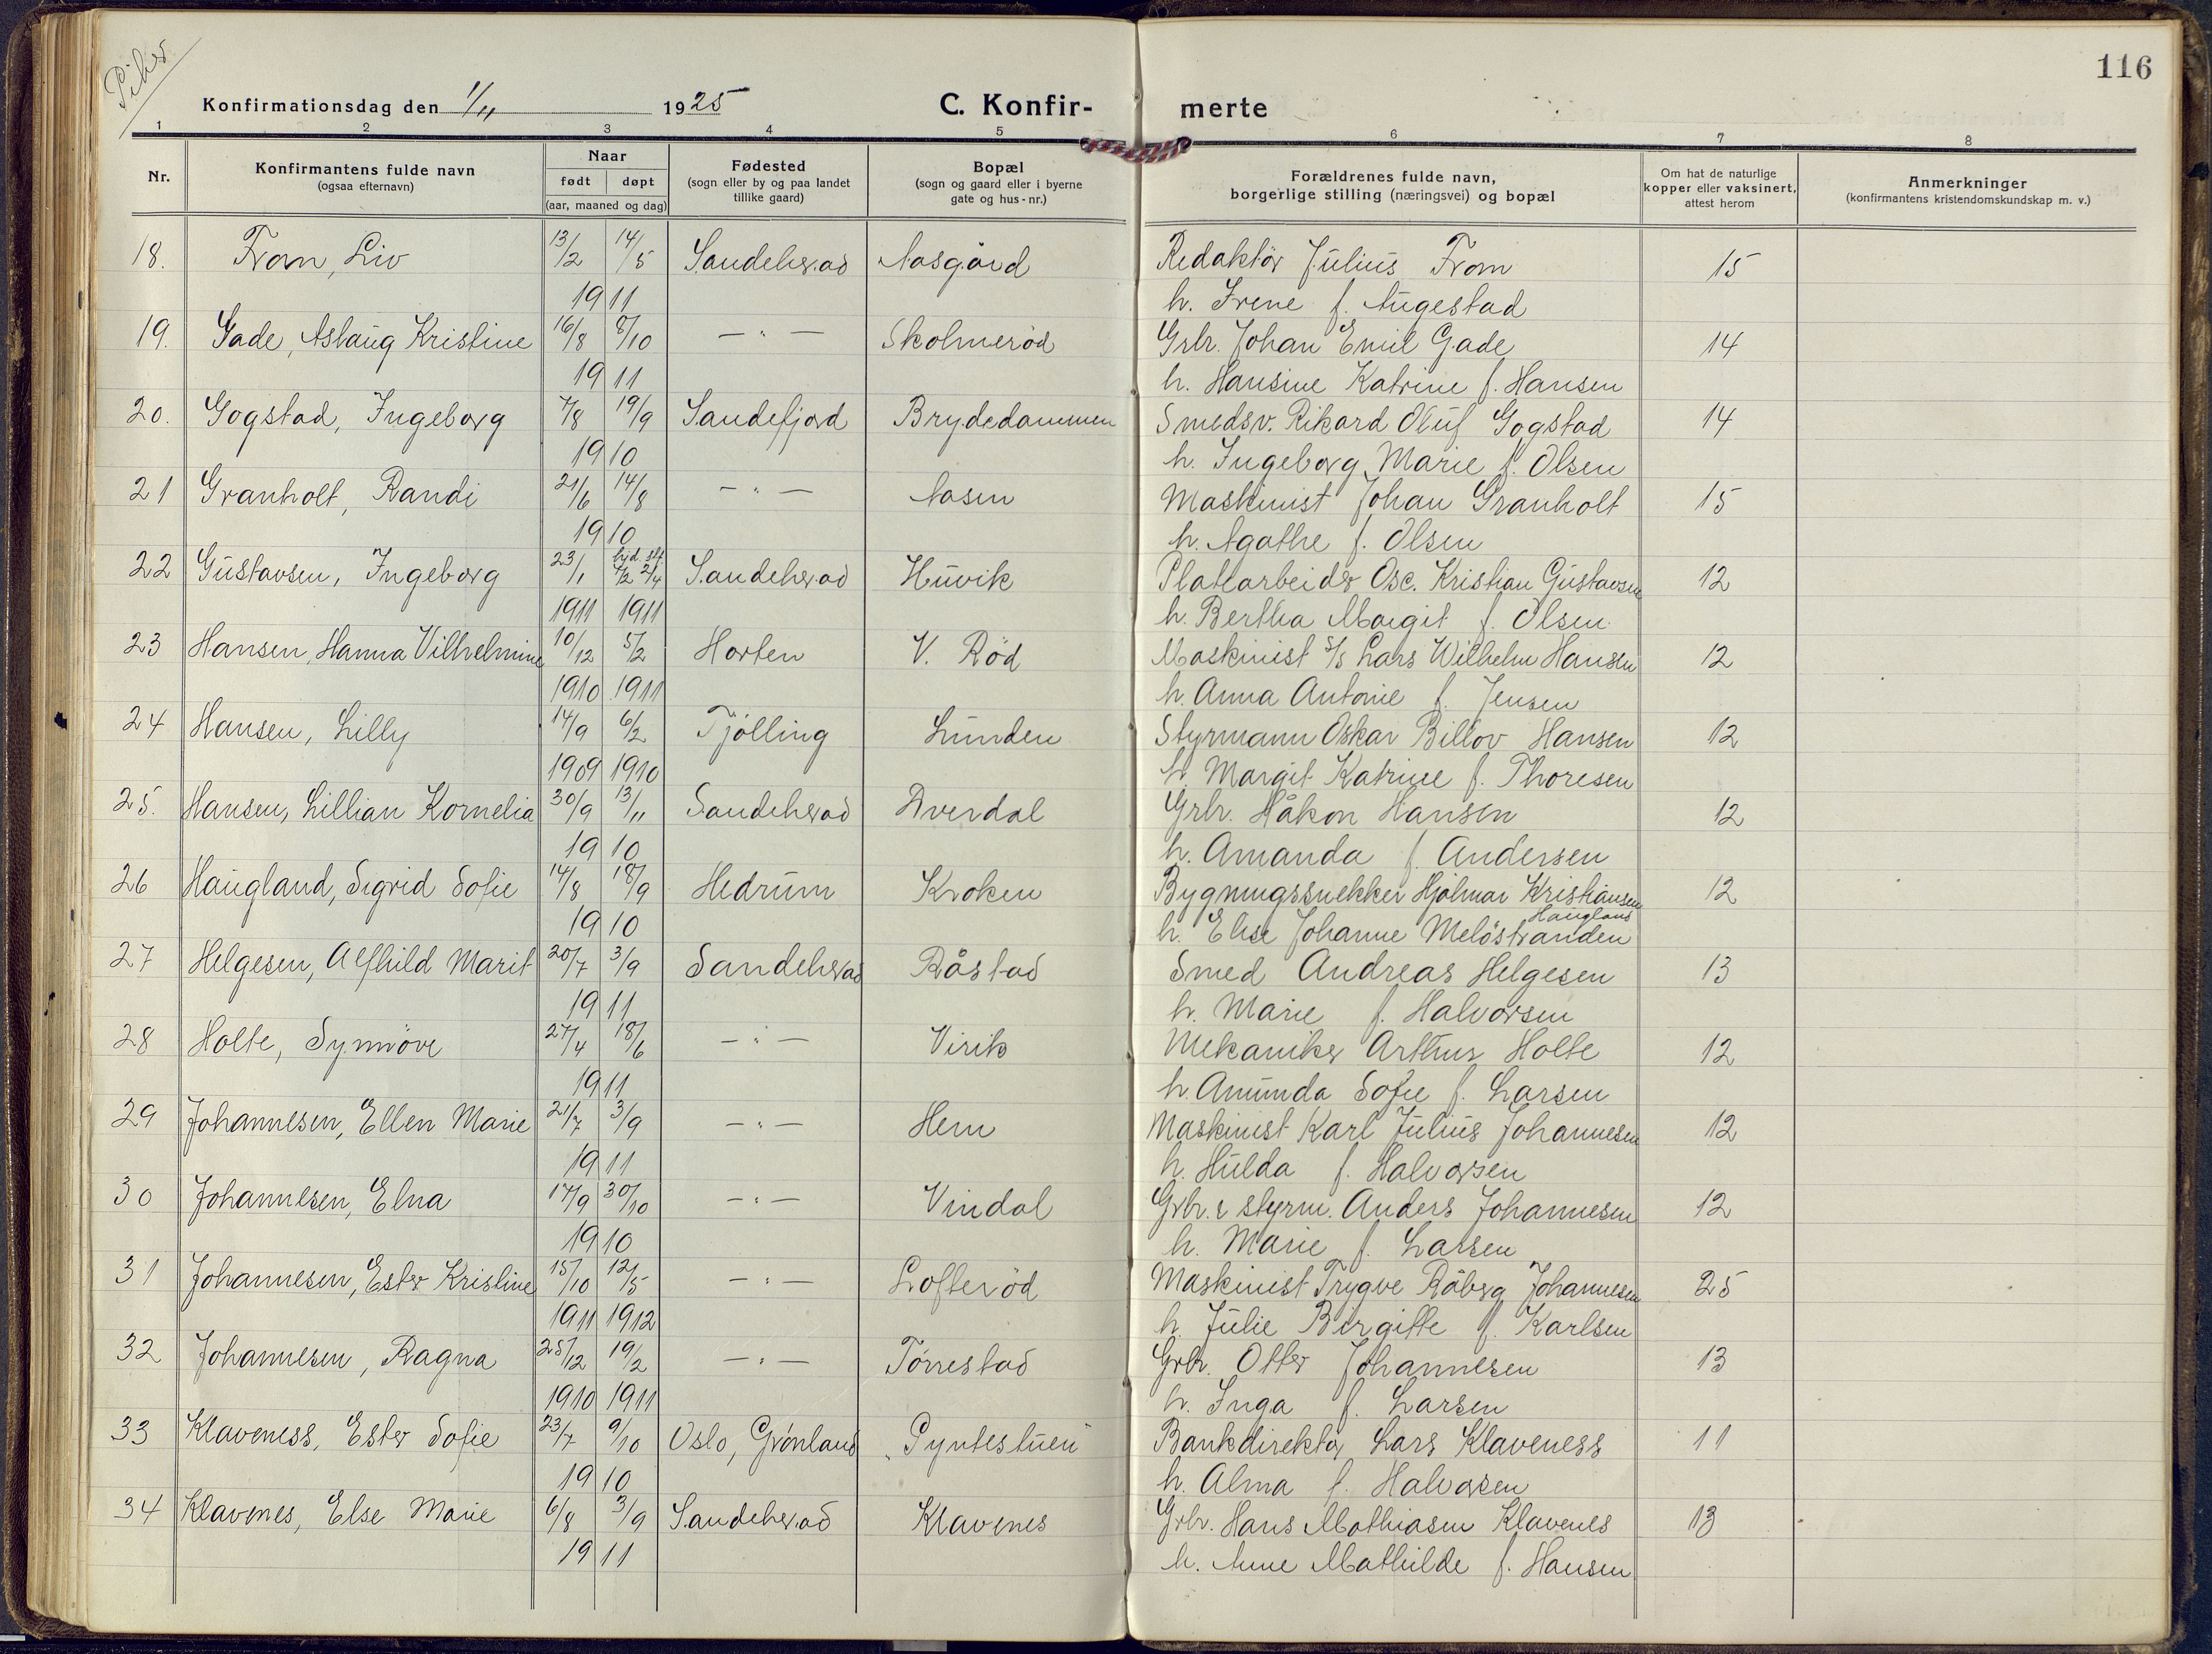 Piker
116
Konfirmationsdag den 1/11 1925 C. Konfir- merte
1 2 3 4 5 6 7 8
Nr.
Konfirmantens fulde navn
(ogsaa efternavn)
Naar
født døpt
(aar, maaned og dag)
Fødested
(sogn eller by og paa landet
tillike gaard)
Bopæl
(sogn og gaard eller i byerne
gate og hus-nr.)
Forældrenes fulde navn,
borgerlige stilling (næringsvei) og bopæl
Om hat de naturlige
kopper eller vaksinert,
attest herom
Anmerkninger
(konfirmantens kristendomskundskap m. v.)
18. From, Liv 13/2 14/5 Sandeherad Aasgård Redaktør Julius From 15
1911 h. Irene f. Augestad
19. Gade, Aslaug Kristine 16/8 8/10 — " — Skolmerød Grbr. Johan Emil Gade 14
1911 h. Hansine Katrine f. Hansen
20. Gogstad, Ingeborg 7/8 19/9 Sandefjord Brydedammen Smedsv. Rikard Oluf Gogstad 14
1910 h. Ingeborg Marie f. Olsen
21 Granholt, Randi 21/6 14/8 — " — Aasen Maskinist Johan Granholt 15
1910 h. Agathe f. Olsen
22 Gustavsen, Ingeborg 23/1 hjd. 7/2 stf. 2/4 Sandeherad Huvik Platearbeider Osc. Kristian Gustavsen 12
1911 1911 h. Bertha Margit f. Olsen
23 Hansen, Hanna Vilhelmine 10/12 5/2 Horten V. Rød Maskinist S/S Lars Wilhelm Hansen 12
1910 1911 h. Anna Antonie f. Jensen
24 Hansen, Lilly 14/9 6/2 Tjølling Lunden Styrmann Oskar Billov Hansen 12
1909 1910 h. Margit Katrine f. Thoresen
25. Hansen, Lillian Kornelia 30/9 13/11 Sandeherad Dverdal Grbr. Håkon Hansen 12
1910 h. Amanda f. Andersen
26 Haugland, Sigrid Sofie 14/8 18/9 Hedrum Kroken Bygningssnekker Hjalmar Kristiansen 12
Haugland
1910 h. Elise Johanne Meløstranden
27 Helgesen, Alfhild Marit 20/7 3/9 Sandeherad Råstad Smed Andreas Helgesen 13
1911 h. Marie f. Halvorsen
28 Holte, Synnöve 27/4 18/6 — " — Virik Mekaniker Arthur Holte 12
1911 h. Amunda Sofie f. Larsen
29 Johannesen, Ellen Marie 21/7 3/9 — " — Hem Maskinist Karl Julius Johannesen 12
1911 h. Hulda f. Halvorsen
30 Johannesen, Elna 17/9 30/10 — " — Vindal Grbr. & styrm. Anders Johannesen 12
1910 h. Marie f. Larsen
31 Johannesen, Ester Kristine 15/10 12/5 — " — Lofterød Maskinist Trygve Råberg Johannesen 25
1911 1912 h. Julie Birgitte f. Karlsen
32 Johannesen, Ragna 25/12 19/2 — " — Tørrestad Grbr. Otter Johannesen 13
1910 1911 h. Inga f. Larsen
33 Klaveness, Ester Sofie 23/7 9/10 Oslo, Grønland "Gyntestuen" Bankdirektør Lars Klaveness 11
1910 h. Alma f. Halvorsen
34 Klavenes, Else Marie 6/8 3/9 Sandeherad Klavenes Grbr. Hans Mathiasen Klavenes 13
1911 h. Anne Mathilde f. Hansen